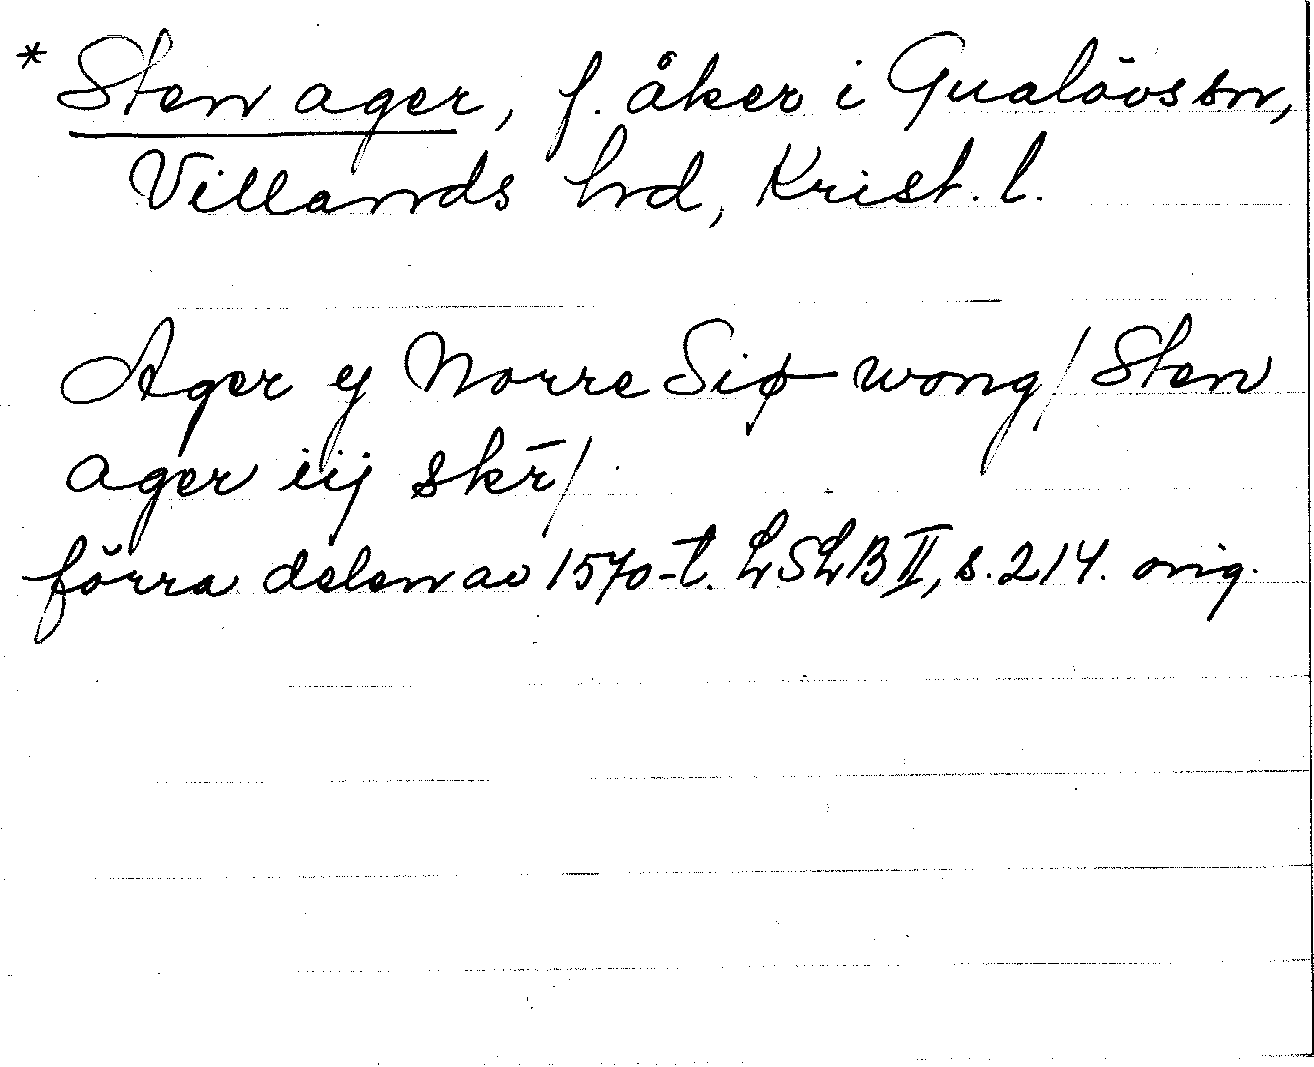 * Sten ager, f. åker i Gualövs sn,
Villands hd, Krist. l.
Ager y Norre Siø wong / Sten
ager iij skr̄ /
förra delen av 1570-t. LSLB II, s. 214. orig.